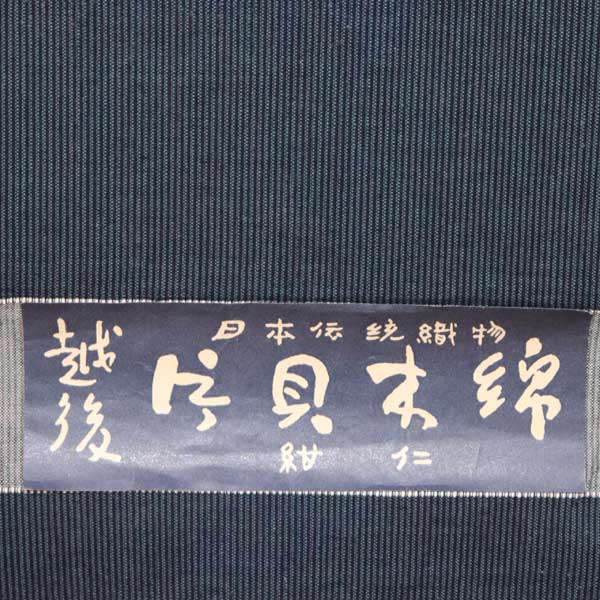 越後
日本伝統織物
片貝木綿
紺仁